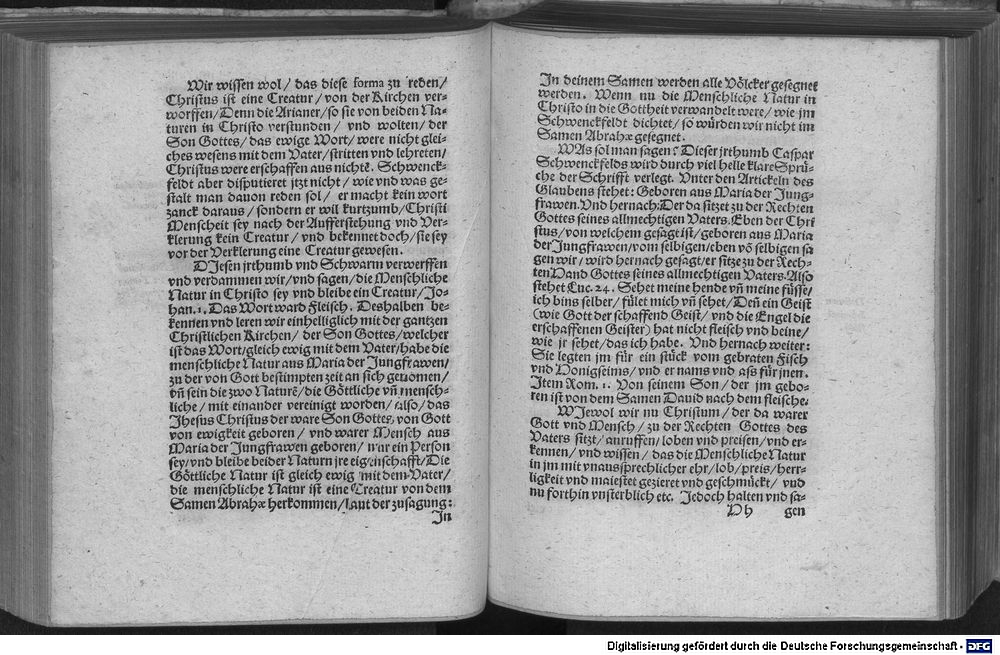 Wir wissen wol / das diese forma zu reden /
Christus ist eine Creatur / von der Kirchen ver-
worffen / Denn die Arianer / so sie von beiden Na-
turen in Christo verstunden / vnd wolten / der
Son Gottes / das ewige Wort / were nicht glei-
ches wesens mit dem Vater / stritten vnd lehreten /
Christus were erschaffen aus nichtẽ. Schwenck-
feldt aber disputieret jtzt nicht / wie vnd was ge-
stalt man dauon reden sol / er macht kein wort
zanck daraus / sondern er wil kurtzumb / Christi
Menscheit sey nach der Aufferstehung vnd Ver-
klerung kein Creatur / vnd bekennet doch / sie sey
vor der Verklerung eine Creatur gewesen.
DJesen jrthumb vnd Schwarm verwerffen
vnd verdammen wir / vnd sagen / die Menschliche
Natur in Christo sey vnd bleibe ein Creatur / Jo-
han. 1. Das Wort ward Fleisch. Deshalben be-
kennen vnd leren wir einhelliglich mit der gantzen
Christlichen Kirchen / der Son Gottes / welcher
ist das Wort / gleich ewig mit dem Vater / habe die
menschliche Natur aus Maria der Jungfrawen /
zu der von Gott bestimpten zeit an sich genomen /
vñ sein die zwo Naturẽ / die Göttliche vñ mensch-
liche / mit einander vereinigt worden / also / das
Jhesus Christus der ware Son Gottes, von Gott
von ewigkeit geboren / vnd warer Mensch aus
Maria der Jungfrawen geboren / nur ein Person
sey / vnd bleibe beider Naturn jre eigenschafft / Die
Göttliche Natur ist gleich ewig mit dem Vater /
die menschliche Natur ist eine Creatur von dem
Samen Abrahæ herkommen / laut der zusagung:
In
In deinem Samen werden alle Völcker gesegnet
werden. Wenn nu die Menschliche Natur in
Christo in die Gottheit verwandelt were / wie jm
Schwenckfeldt dichtet / so würden wir nicht im
Samen Abrahæ gesegnet.
WAs sol man sagen? Dieser jrthumb Caspar
Schwenckfelds wird durch viel helle klare Sprü-
che der Schrifft verlegt. Vnter den Artickeln des
Glaubens stehet: Geboren aus Maria der Jung-
frawen. Vnd hernach: Der da sitzet zu der Rechten
Gottes seines allmechtigen Vaters. Eben der Chri
stus / von welchem gesagt ist / geboren aus Maria
der Jungfrawen / vom selbigen / eben võ selbigen sa
gen wir / wird hernach gesagt / er sitze zu der Rech-
ten Hand Gottes seines allmechtigen Vaters. Also
stehet Luc. 24. Sehet meine hende vñ meine füsse /
ich bins selber / fület mich vñ sehet / Deñ ein Geist
(wie Gott der schaffend Geist / vnd die Engel die
erschaffenen Geister) hat nicht fleisch vnd beine /
wie jr sehet / das ich habe. Vnd hernach weiter:
Sie legten jm für ein stück vom gebraten Fisch
vnd Honigseims / vnd er nams vnd aß für jnen.
Item Rom. 1. Von seinem Son / der jm gebo-
ren ist von dem Samen Dauid nach dem fleische.
WJewol wir nu Christum / der da warer
Gott vnd Mensch / zu der Rechten Gottes des
Vaters sitzt / anruffen / loben vnd preisen / vnd er-
kennen / vnd wissen / das die Menschliche Natur
in jm mit vnaussprechlicher ehr / lob / preis / herr-
ligkeit vnd maiestet gezieret vnd geschmückt / vnd
nu forthin vnsterblich etc. Jedoch halten vnd sa-
Hh gen
Digitalisierung gefördert durch die Deutsche Forschungsgemeinschaft - DFG